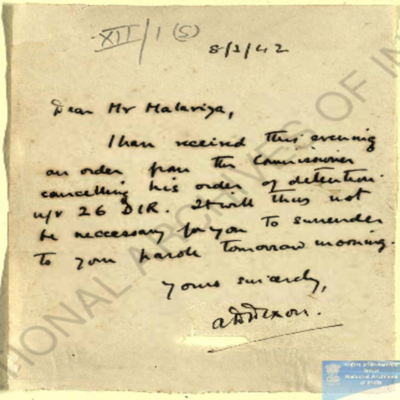 XII/1(S)
8/2/42
Dear Mr Malaviya,
I have received this evening
an order from the Commissioner
cancelling his order of detention
u/r 26 DIR. It will thus not
be neccessary for you to surrender
to your parole tomorrow morning.
Yours sincerely,
NATIONAL ARCHIVES OF IN